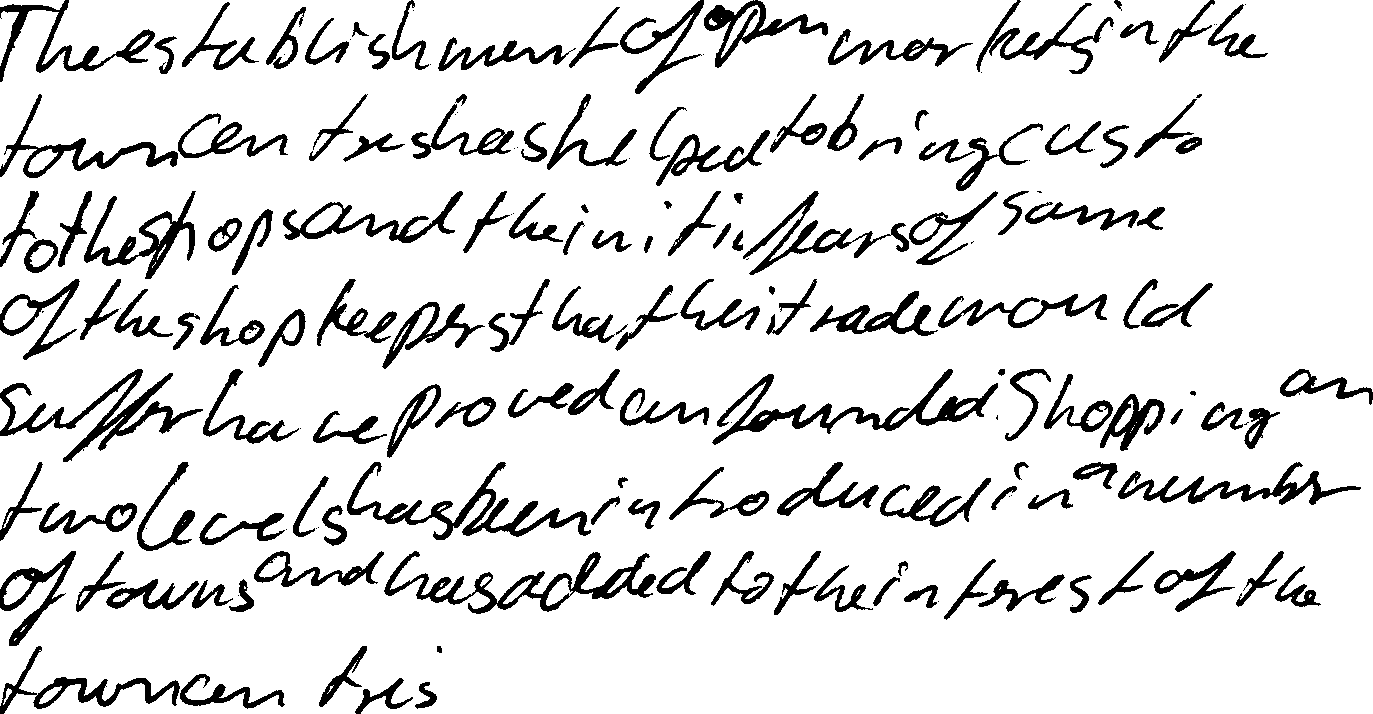 The establishment of open markets in the
town centres has helped to bring custo
to the shops and the initial fears of some
of the shopkeepers that their trade would
suffer have proved unfounded. Shopping on
two levels has been introduced in a number
of towns and has added to the interest of the
town centres